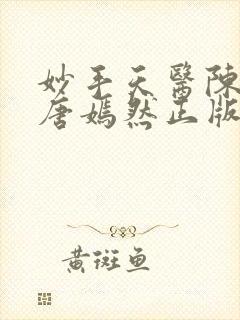 妙手天醫陳
唐嫣然正版
黃斑魚